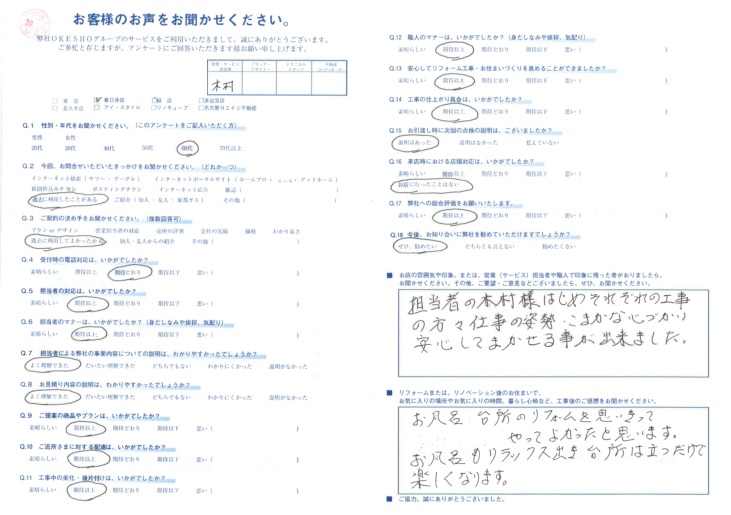 お客様のお声をお聞かせください。
弊社OKESHOグループのサービスをご利用いただきまして、誠にありがとうございます。
ご多忙と存じますが、アンケートにご回答いただきます様お願い申し上げます。
木村
本店 春日井店 緑店 多治見店
長久手店 アイ・スタイル リノキューブ 名古屋ロエイジ不動産
Q.1 性別・年代をお聞かせください。(このアンケートをご記入いただく方)
男性 女性
20代 30代 40代 50代 60代 70代以上
Q.2 今回、お問合せいただいたきっかけをお聞かせください。(どれか一つ)
インターネット検索(ヤフー・グーグル) インターネットポータルサイト(ホームプロ・スーモ・アットホーム)
新聞折込みチラシ ポスティングチラシ インターネット広告 雑誌( )
過去に利用したことがある ご紹介(知人・友人・業者ガス) その他( )
Q.3 ご契約の決め手をお聞かせください。(複数回答可)
プラン or デザイン 営業担当者の対応 近所の評判 会社の実績 価格 わかり易さ
過去に利用してよかったから 知人・友人からの紹介 その他( )
Q.4 受付時の電話対応は、いかがでしたか?
素晴らしい 期待以上 期待どおり 期待以下 悪い( )
Q.5 担当者の対応は、いかがでしたか?
素晴らしい 期待以上 期待どおり 期待以下 悪い( )
Q.6 担当者のマナーは、いかがでしたか?(身だしなみや挨拶、気配り)
素晴らしい 期待以上 期待どおり 期待以下 悪い( )
Q.7 担当者による弊社の事業内容についての説明は、わかりやすかったでしょうか?
よく理解できた だいたい理解できた どちらでもない わかりにくかった 説明がなかった
Q.8 お見積り内容の説明は、わかりやすかったでしょうか?
よく理解できた だいたい理解できた どちらでもない わかりにくかった 説明がなかった
Q.9 ご提案の商品やプランは、いかがでしたか?
素晴らしい 期待以上 期待どおり 期待以下 悪い( )
Q.10 ご近所さまに対する配慮は、いかがでしたか?
素晴らしい 期待以上 期待どおり 期待以下 悪い( )
Q.11 工事中の美化・後片付けは、いかがでしたか?
素晴らしい 期待以上 期待どおり 期待以下 悪い( )
Q.12 職人のマナーは、いかがでしたか?(身だしなみや挨拶、気配り)
素晴らしい 期待以上 期待どおり 期待以下 悪い( )
Q.13 安心してリフォーム工事・お住まいづくりを進めることができましたか?
素晴らしい 期待以上 期待どおり 期待以下 悪い( )
Q.14 工事の仕上がり具合は、いかがでしたか?
素晴らしい 期待以上 期待どおり 期待以下 悪い( )
Q.15 お引渡し時に次回の点検の説明は、ございましたか?
説明はあった 説明はなかった 覚えていない
Q.16 来店時における店頭対応は、いかがでしたか?
素晴らしい 期待以上 期待どおり 期待以下 悪い( )
お店に行ったことはない
Q.17 弊社への総合評価をお願いいたします。
素晴らしい 期待以上 期待どおり 期待以下 悪い( )
Q.18 今後、お知り合いに弊社を勧めていただけますでしょうか?
ぜひ、勧めたい どちらとも言えない 勧めたくない
■ お店の雰囲気や印象、または、営業(サービス)担当者や職人で印象に残った者がおりましたら、
お聞かせください。その他、ご要望・ご意見などございましたら、ぜひ、お聞かせください。
担当者の木村様はじめそれぞれの工事
の方々仕事の姿勢、こまかな心づかい
安心してまかせる事が出来ました。
■ リフォームまたは、リノベーション後のお住まいで、
お気に入りの場所やお気に入りの時間、暮らし心地など、工事後のご感想をお聞かせください。
お風呂、台所のリフォームを思いきって
やってよかったと思います。
お風呂もリラックス出き台所は立つだけで
楽しくなります。
■ ご協力、誠にありがとうございました。